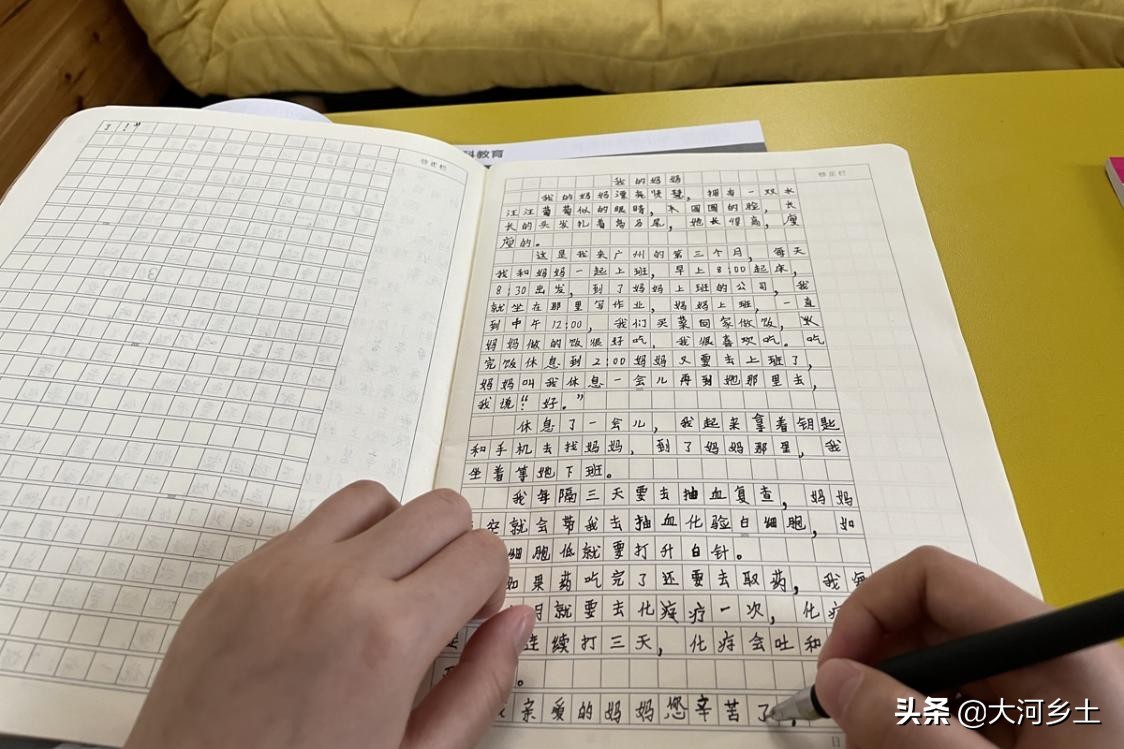 3!"
修正栏
科教育
修正栏
我的妈妈
我的妈妈漂亮贤慧，拥有一双水
汪汪葡萄似的眼睛，圆圆的脸，长
长的头发扎着高马尾，她长得高，瘦
瘦的。
这是我来广州的第三个月，每天
我和妈妈一起上班，早上8:00起床，
8:30出发，到了妈妈上班的公司，我
就坐在那里写作业，妈妈上班，一直
到中午12:00，我们买菜回家做饭，
妈妈做的饭很好吃，我很喜欢吃。吃
完饭休息到2:00妈妈又要去上班了，
妈妈叫我休息一会儿再到她那里去，
我说：“好。”
休息了一会儿，我起来拿着钥匙
和手机去找妈妈，到了妈妈那里，我
坐着等她下班。
我每隔三天要去抽血复查，妈妈
空就会带我去抽血化验白细胞，如
细胞低就要打升白针。
如果药吃完了还要去取药，我每
月就要去化疗一次，化疗
连续打三天，化疗会吐和
。
亲爱的妈妈您辛苦了
日
头条 @大河乡土